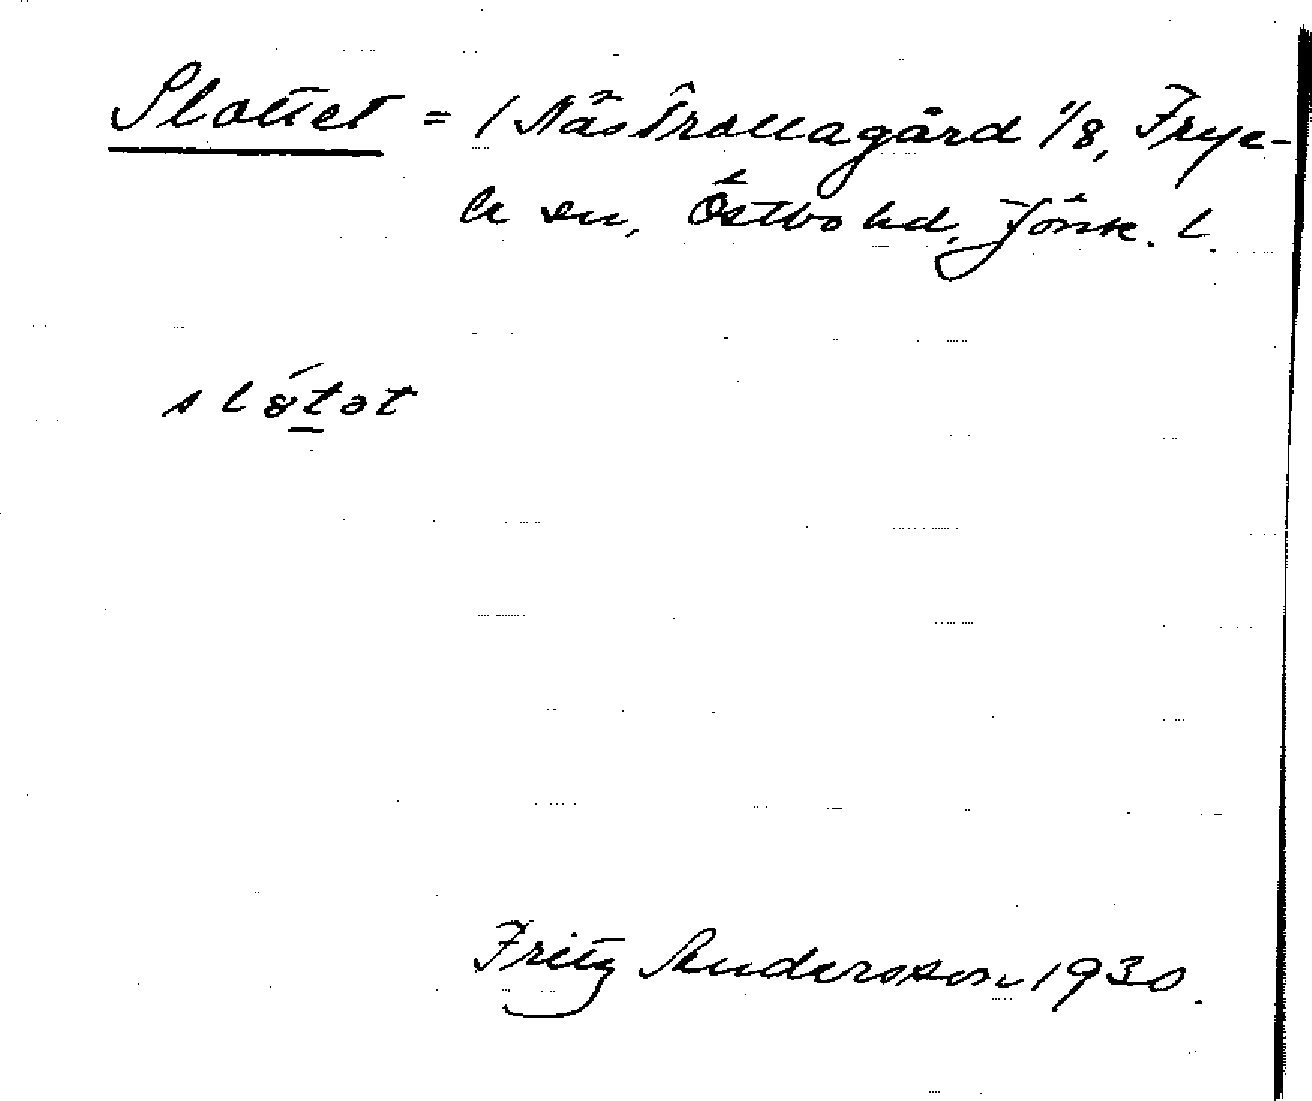 Slottet = / Näs Trollagård 1/8, Frye-
le sn, Östbo hd, Jönk. l.
slo̩tət
Fritz Andersson 1930.